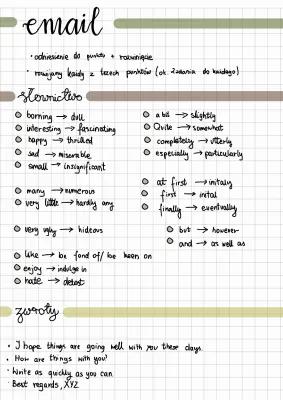 email
· odniesienie do punktu + rozwinięcie
· rozwijamy każdy z trzech punktów (ok. 2 zdania do każdego)
słownictwo
boring → dull
interesting → fascinating
happy → thrilled
sad → miserable
small → insignificant
many → numerous
very little → hardly any
very ugly → hideous
like → be fond of/ be keen on
enjoy → indulge in
hate → detest
a bit → slightly
Quite → somewhat
completely → utterly
especially → particularly
at first → initialy
first → inital
finally → eventually
but → however
and → as well as
zwroty
· I hope things are going well with you these days.
· How are things with you?
· Write as quickly as you can.
· Best regards, XYZ